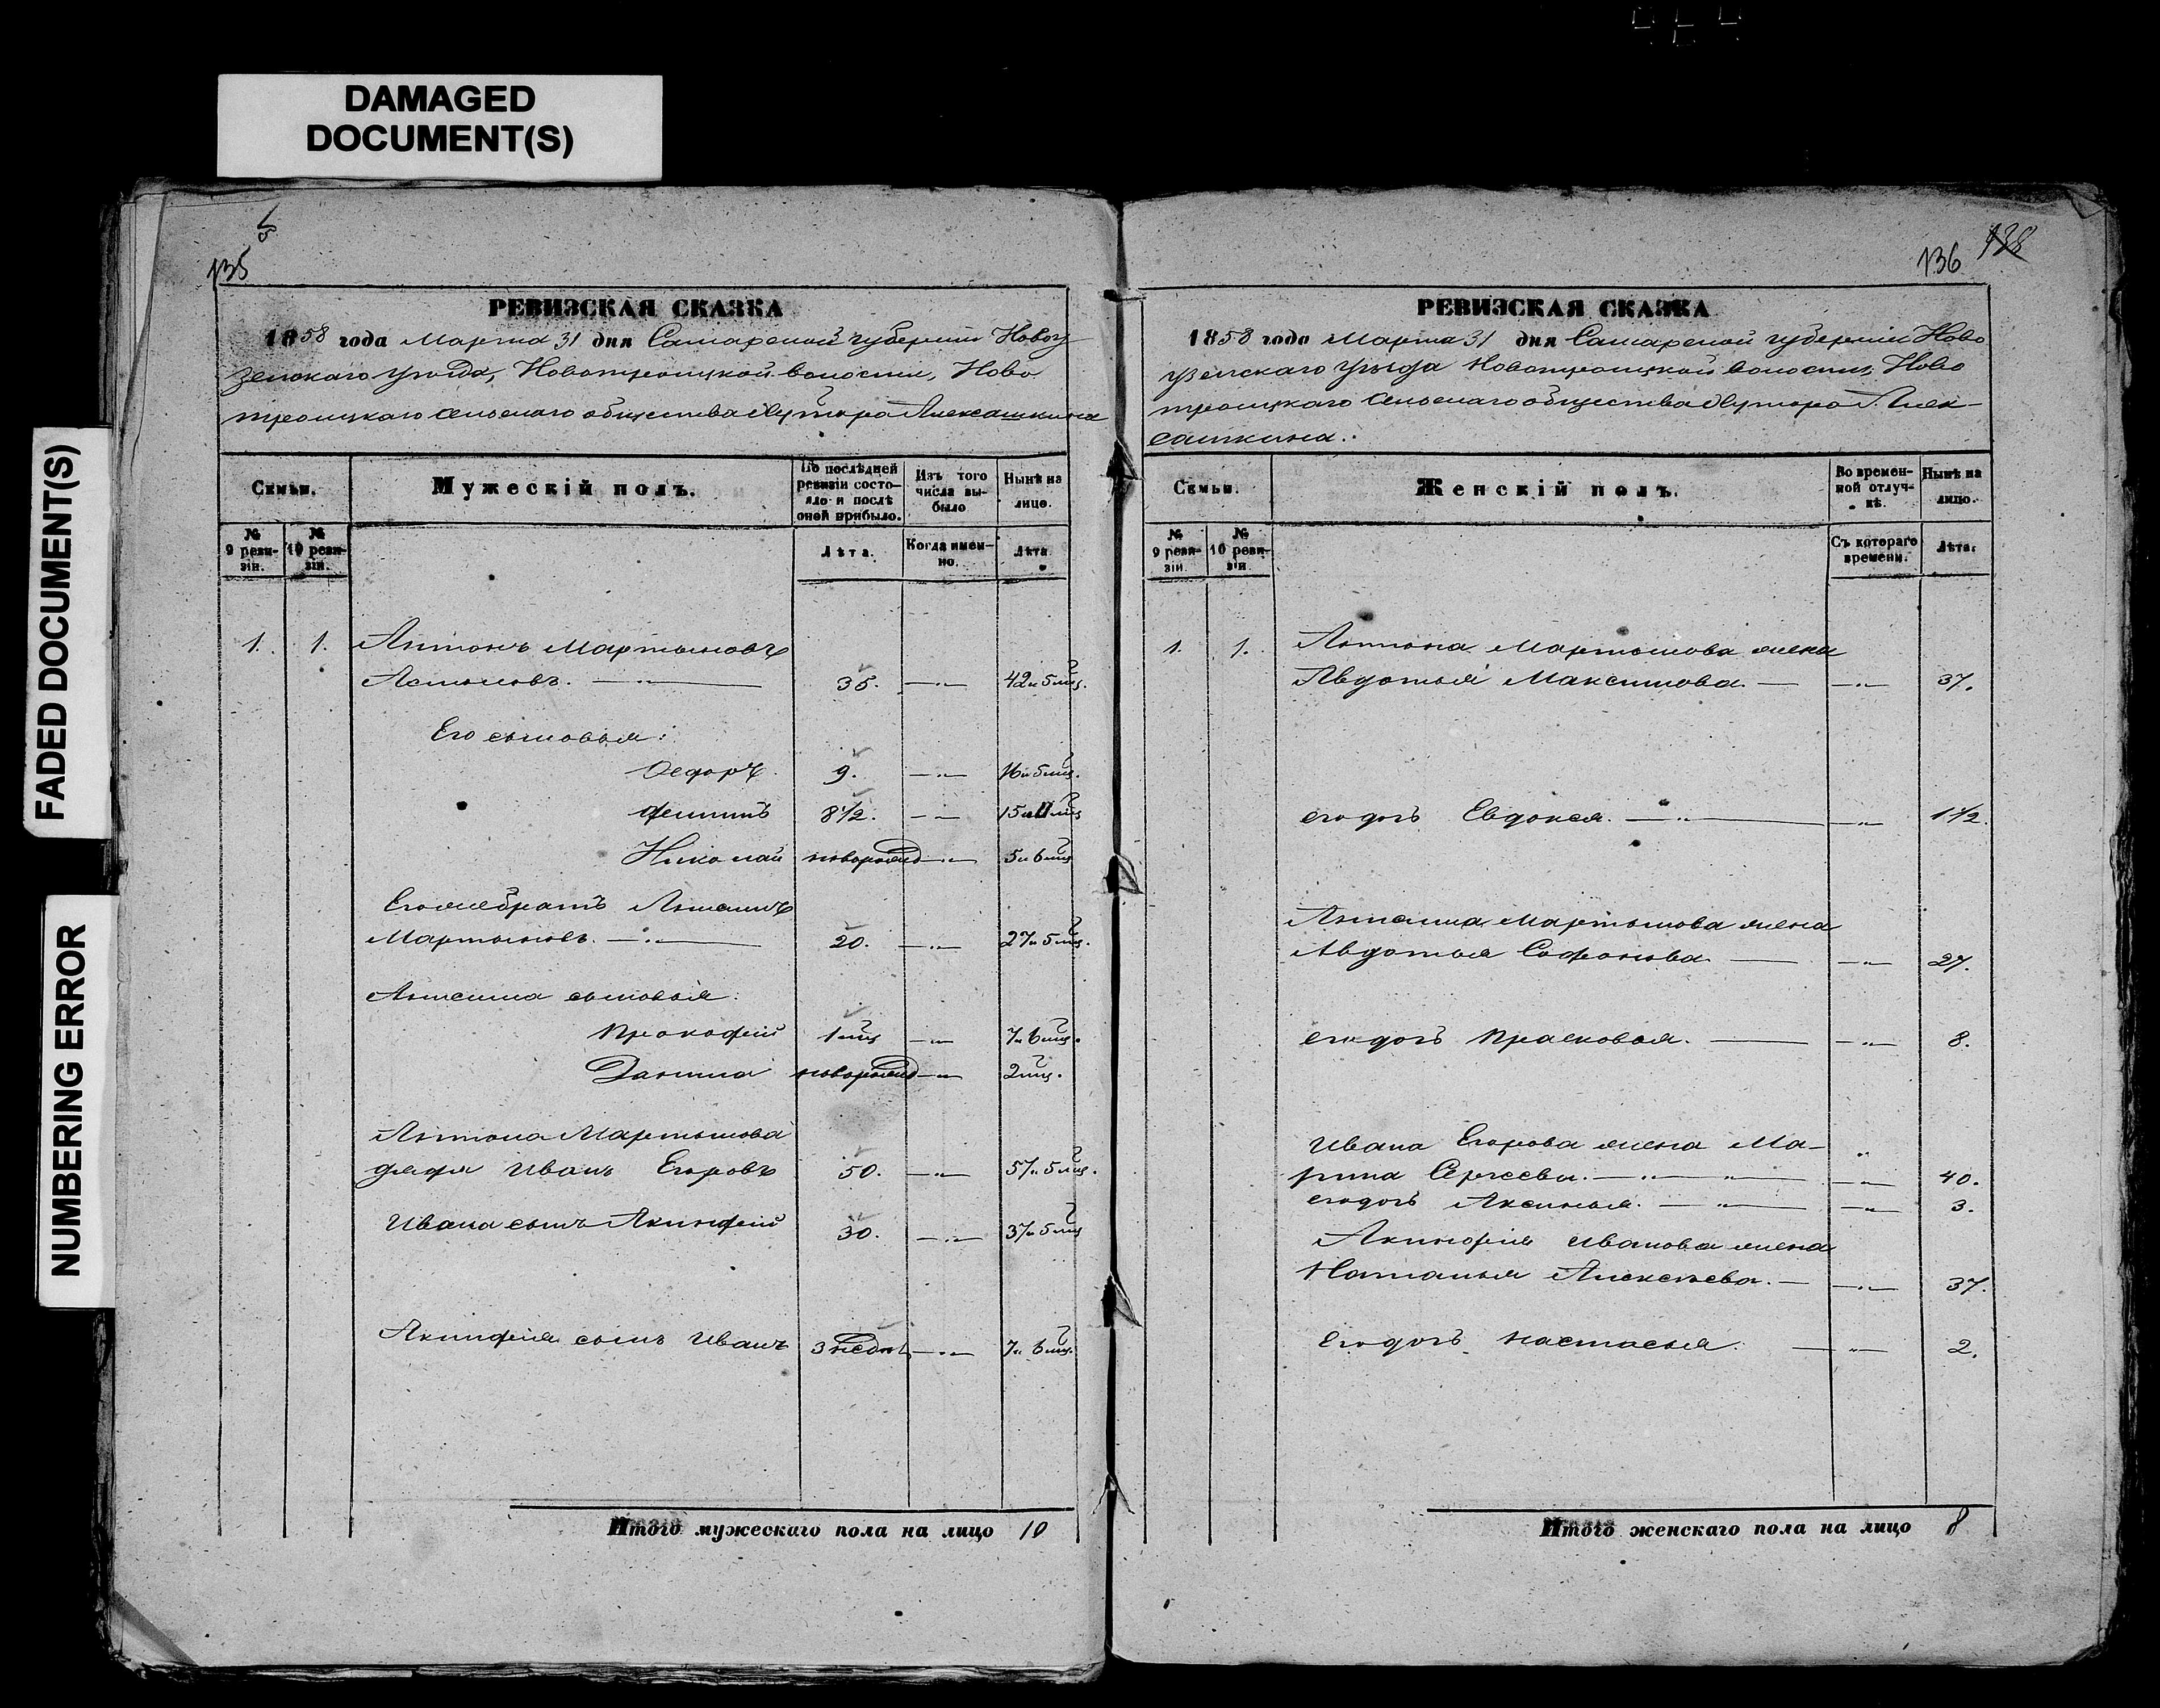 DAMAGED
DOCUMENT(S)
FADED DOCUMENT(S)
NUMBERING ERROR
135
РЕВИЗСКАЯ СКАЗКА
1858 года Марта 31 дня Самарской губернии Новоу
зенскаго уѣзда, Новотроицкой волости, Ново
троицкаго сельскаго общества Хутора Алексашкина
Семьи.
Мужескій полъ.
По послѣдней ревизіи состояло и послѣ оной прибыло.
Изъ того числа выбыло
Нынѣ на лицо.
№ 9 ревизіи.
№ 10 ревизіи.
Лѣта.
Когда именно.
Лѣта
1. 1. Антонъ Мартыновъ
35. 42 и 5 мѣц.
Его сыновья:
Ѳедоръ. 9. 16 и 5 мѣц.
Филипъ 8 1/2. 15 мѣц
Николай новорожд 5 и 6 мѣц
Его же братъ
Мартыновъ. 20. 27 и 5 мѣц.
сыновья:
Прокофій 1 мѣц 7 и 6 мѣц.
Данила новорожд 2 мѣц.
Антона Мартынова
дядя Иванъ Егоровъ 50. 57 и 5 мѣц.
Ивана сынъ Акинфій 30. 37 и 5 мѣц
Акинфія сынъ Иванъ 3 недѣл 7 и 6 мѣц.
Итого мужескаго пола на лицо 10
136 138
РЕВИЗСКАЯ СКАЗКА
1858 года Марта 31 дня Самарской губерніи Ново
узенскаго уѣзда Новотроицкой волости, Ново
троицкаго сельскаго общества Хутора Алек-
сашкина.
Семьи.
Женскій полъ.
Во временной отлучкѣ.
Нынѣ на лицо.
№ 9 ревизіи
№ 10 ревизіи
Съ котораго времени.
Лѣта.
1. 1. Антона Мартынова жена
Авдотья Максимова. 37.
его дочь Евдокея. 1 1/2.
Мартынова жена
Авдотья Софонова 27.
его дочь Прасковья. 8.
Ивана Егорова жена Ма-
рина Сергеева. 40.
его дочь Аксинья. 3.
Акинфія Иванова жена
Наталья Алексѣева. 37.
его дочь Настасья. 2.
Итого женскаго пола на лицо 8